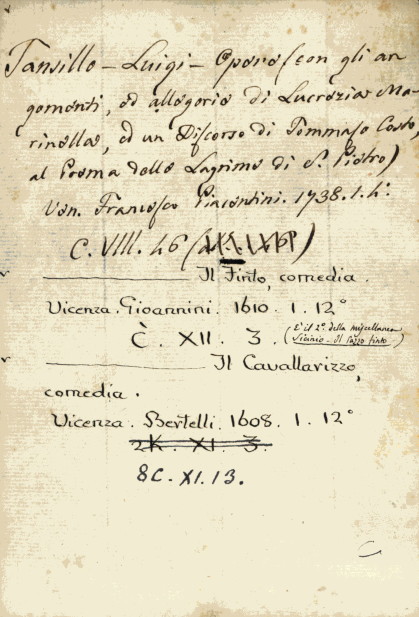 Tansillo - Luigi - Opere (con gli ar
gomenti, ed allegorie di Lucrezia Ma-
rinella, ed un Discorso di Tommaso Costo,
al Poema delle Lagrime di S. Pietro)
Ven. Francesco Piacentini. 1738. 1. 4°
C. VIII. 46 (
Il Finto, comedia.
Vicenza. Gioannini. 1610. 1. 12°
C. XII. 3. (È il 2°. della miscellanea
Sicinio - Il Pazzo finto)
Il Cavallarizzo,
comedia.
Vicenza. Bertelli. 1608. 1. 12°
2K. XI. 3.
8C. XI. 13.